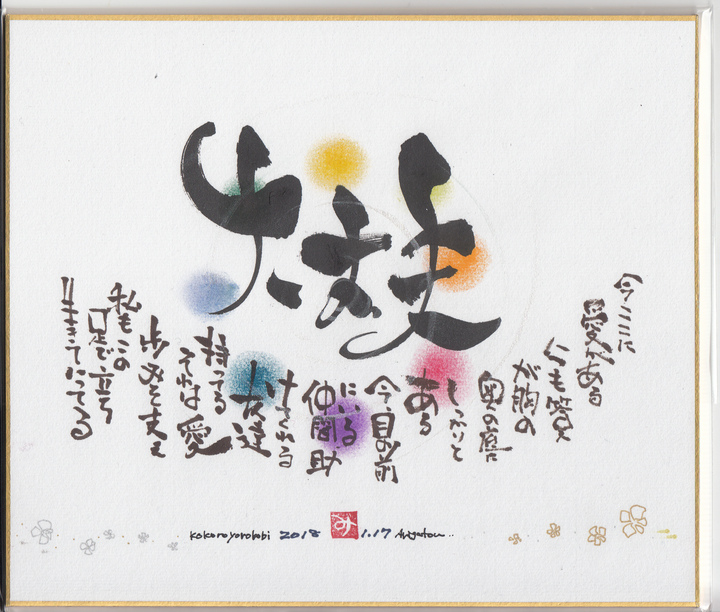 今ここに
愛がある
が胸の
奥の底に
しっかりと
ある
今目の前
にいる
仲間助
けてくれる
友達
持ってる
それは愛
歩みを支え
私もこの
足で立ち
kokoroyorokobi 2018 1.17 Arigatou..